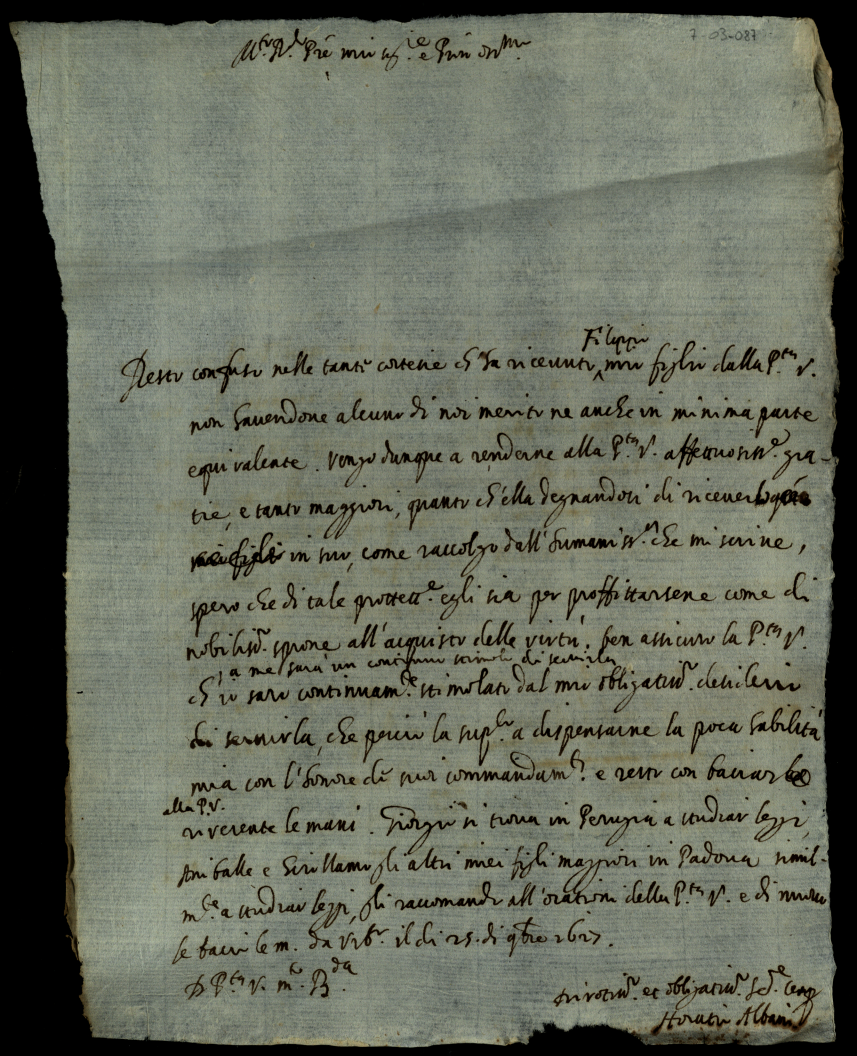 7-03-087
M.to R.do Pre mio sig.re e Prõn oss.mo
Filippo
Resto confuso nelle tante cortesie ch'ha riceuuto mio figlio dalla P.tà V.
non hauendone alcuno di noi merito ne anche in minima parte
equiualente. Vengo dunque a renderne alla P.tà V. affettuosiss.e gra-
tie, e tanto maggiori, quanto ch'ella degnandosi di riceuerlo
in suo, come raccolgo dall'humaniss.a che mi scriue,
spero che di tale protett.e egli sia per proffittarsene come di
nobiliss.o sprone all'acquisto delle virtù. ben assicuro la P.tà V.
a me sarà un continuo stimolo di seruirla
ch'io sarò continuam.te stimolato dal mio obligatiss.o desiderio
di seruirla, che perciò la sup.co a dispensarne la poca habilità
mia con l'honore de suoi commandam.ti e resto con baciar
alla P.V.
riuerente le mani. Giorgio si troua in Perugia a studiar leggi,
Aniballe e Girollamo gli altri miei figli maggiori in Padoua simil-
m.te a studiar leggi, gli raccomando all'orationi della P.tà V. e di nuouo
le bacio le m. da Urb.o il di 25. di 9bre 1627.
D P.tà V. m.to R.da
Diuotiss.o et obligatiss.o Se.re
Horatio Albani